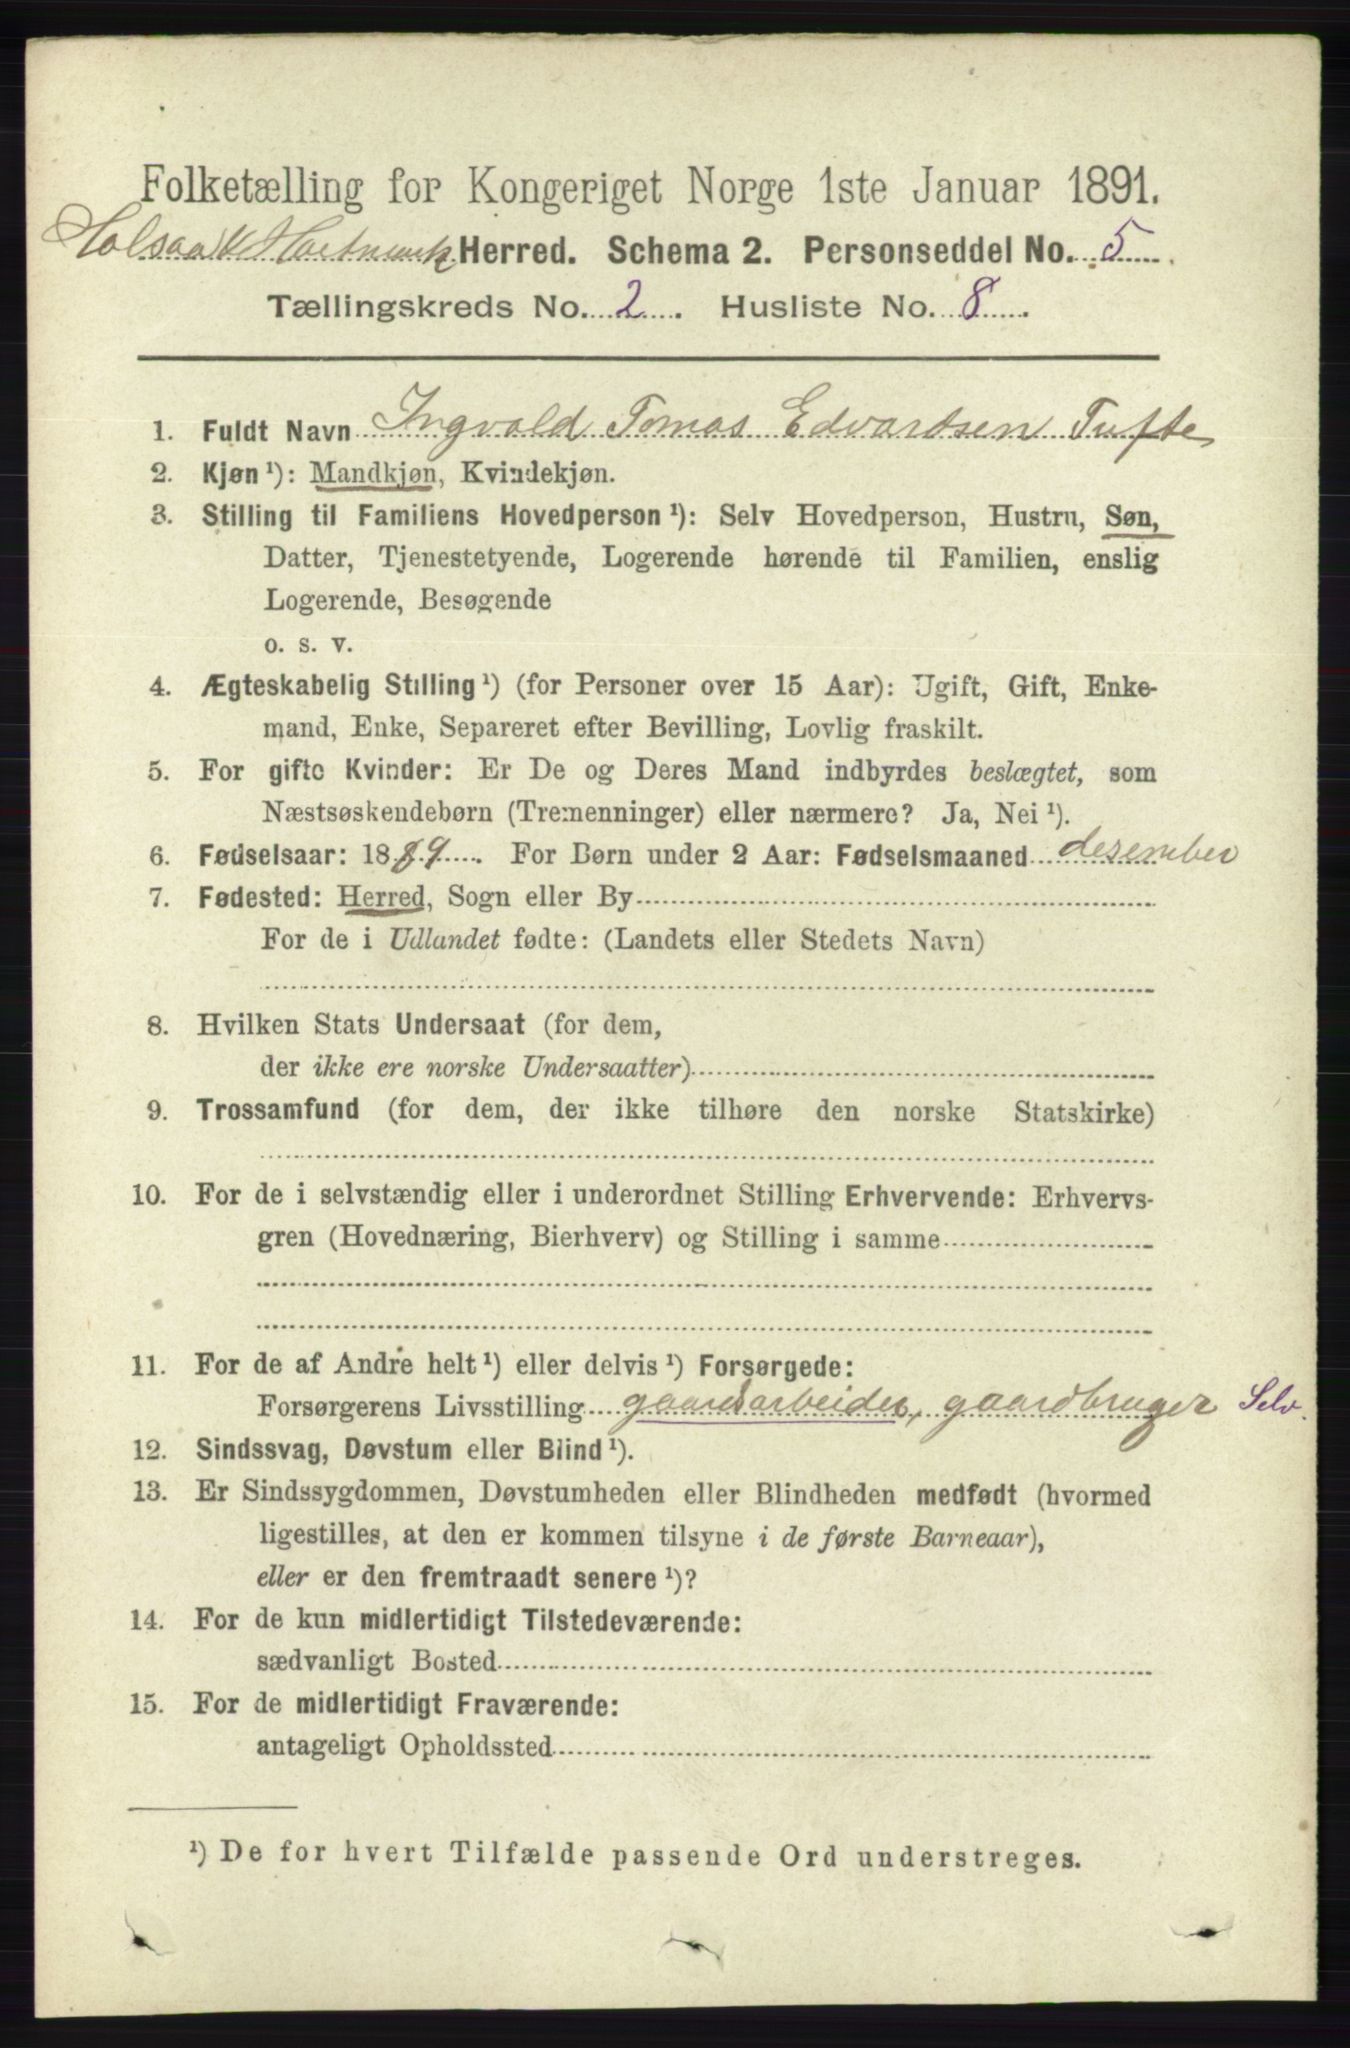 Folketælling for Kongeriget Norge 1ste Januar 1891.
Herred. Schema 2. Personseddel No. 5
Tællingskreds No. 2. Husliste No. 8.
1. Fuldt Navn Ingvald Tomas Edvardsen Tufte
2. Kjøn¹): Mandkjøn, Kvindekjøn.
3. Stilling til Familiens Hovedperson¹): Selv Hovedperson, Hustru, Søn,
Datter, Tjenestetyende, Logerende hørende til Familien, enslig
Logerende, Besøgende
o. s. v.
4. Ægteskabelig Stilling¹) (for Personer over 15 Aar): Ugift, Gift, Enke-
mand, Enke, Separeret efter Bevilling, Lovlig fraskilt.
5. For gifte Kvinder: Er De og Deres Mand indbyrdes beslægtet, som
Næstsøskendebørn (Tremenninger) eller nærmere? Ja, Nei¹).
6. Fødselsaar: 1889. For Børn under 2 Aar: Fødselsmaaned desember
7. Fødested: Herred, Sogn eller By
For de i Udlandet fødte: (Landets eller Stedets Navn)
8. Hvilken Stats Undersaat (for dem,
der ikke ere norske Undersaatter)
9. Trossamfund (for dem, der ikke tilhøre den norske Statskirke)
10. For de i selvstændig eller i underordnet Stilling Erhvervende: Erhvervs-
gren (Hovednæring, Bierhverv) og Stilling i samme
11. For de af Andre helt¹) eller delvis¹) Forsørgede:
Forsørgerens Livsstilling gaardsarbeider, gaardbruger Selv.
12. Sindssvag, Døvstum eller Blind¹).
13. Er Sindssygdommen, Døvstumheden eller Blindheden medfødt (hvormed
ligestilles, at den er kommen tilsyne i de første Barneaar),
eller er den fremtraadt senere¹)?
14. For de kun midlertidigt Tilstedeværende:
sædvanligt Bosted
15. For de midlertidigt Fraværende:
antageligt Opholdssted
¹) De for hvert Tilfælde passende Ord understreges.